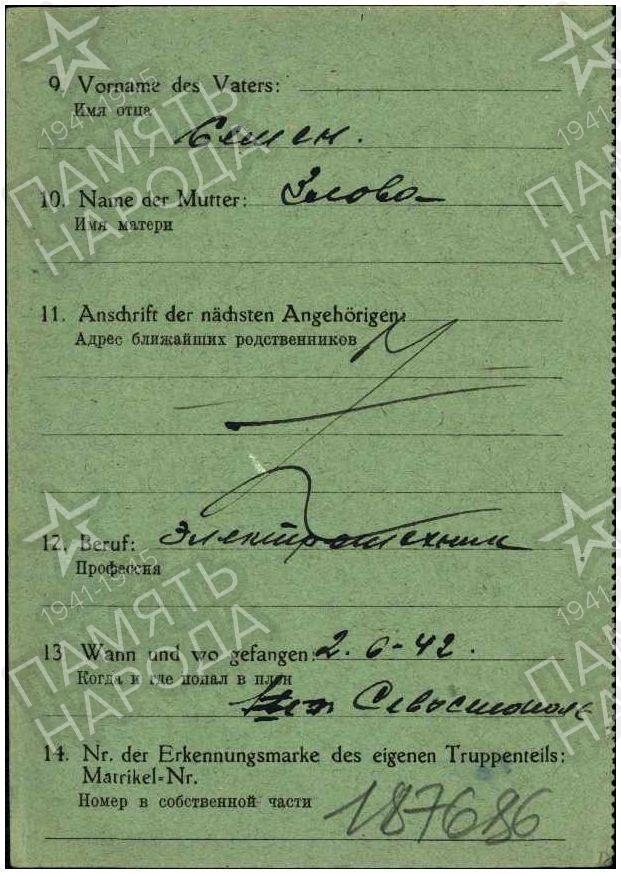 9. Vorname des Vaters:
Имя отца
Семен.
10. Name der Mutter:
Имя матери
11. Anschrift der nächsten Angehörigen:
Адрес ближайших родственников
12. Beruf: Электротехник
Профессия
13. Wann und wo gefangen: 2. 6-42.
Когда и где попал в плен
Севастополь
14. Nr. der Erkennungsmarke des eigenen Truppenteils:
Matrikel=Nr.
Номер в собственной части
187686
1941-1945
ПАМЯТЬ
НАРОДА
1941-1945
ПАМЯТЬ
НАРОДА